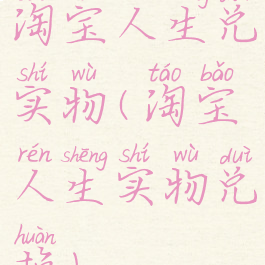 淘宝人生兑
shí wù táo bǎo
实物(淘宝
rén shēng shí wù duì
人生实物兑
huàn